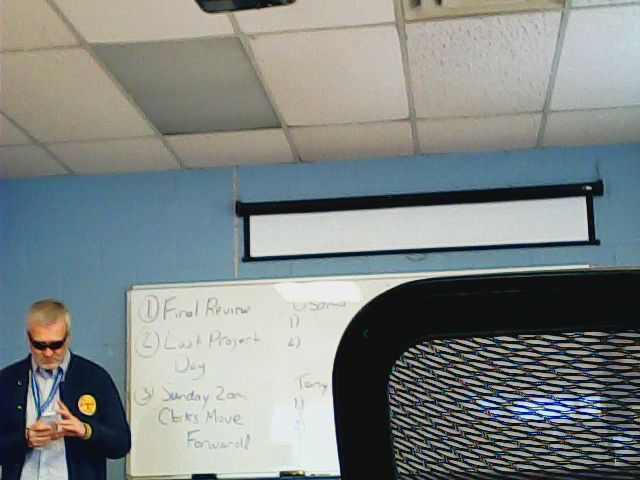 1 Final Review
2 Last Project
Day
3) Sunday 2am
Clocks Move
Forward!
1)
2)
Tony
1)